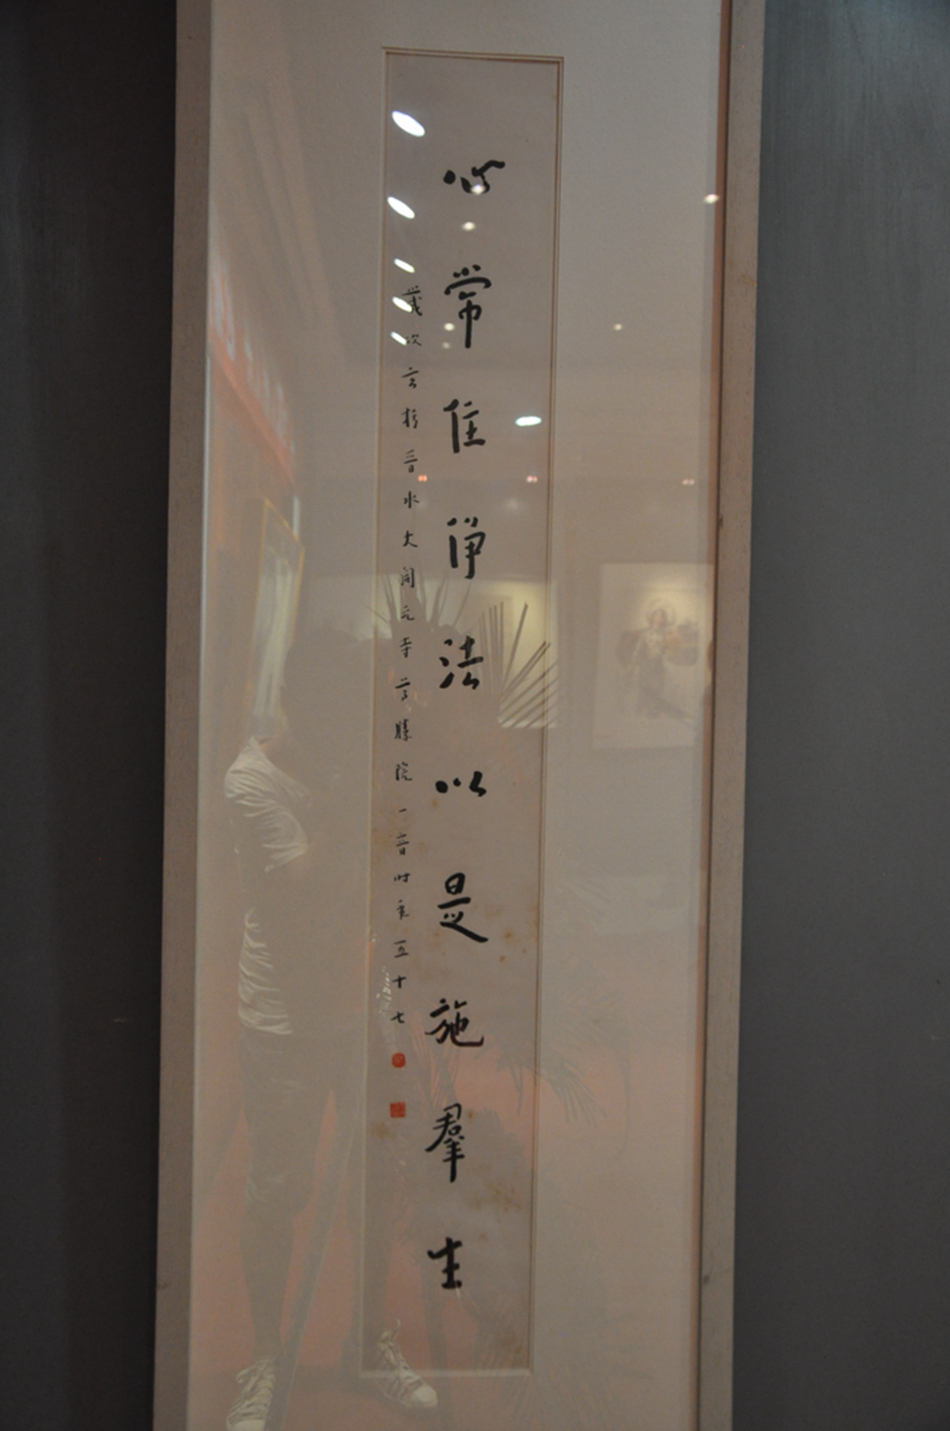 心常住淨法以是施羣生
歲次玄枵晉水大開元寺尊勝院一音時年五十七